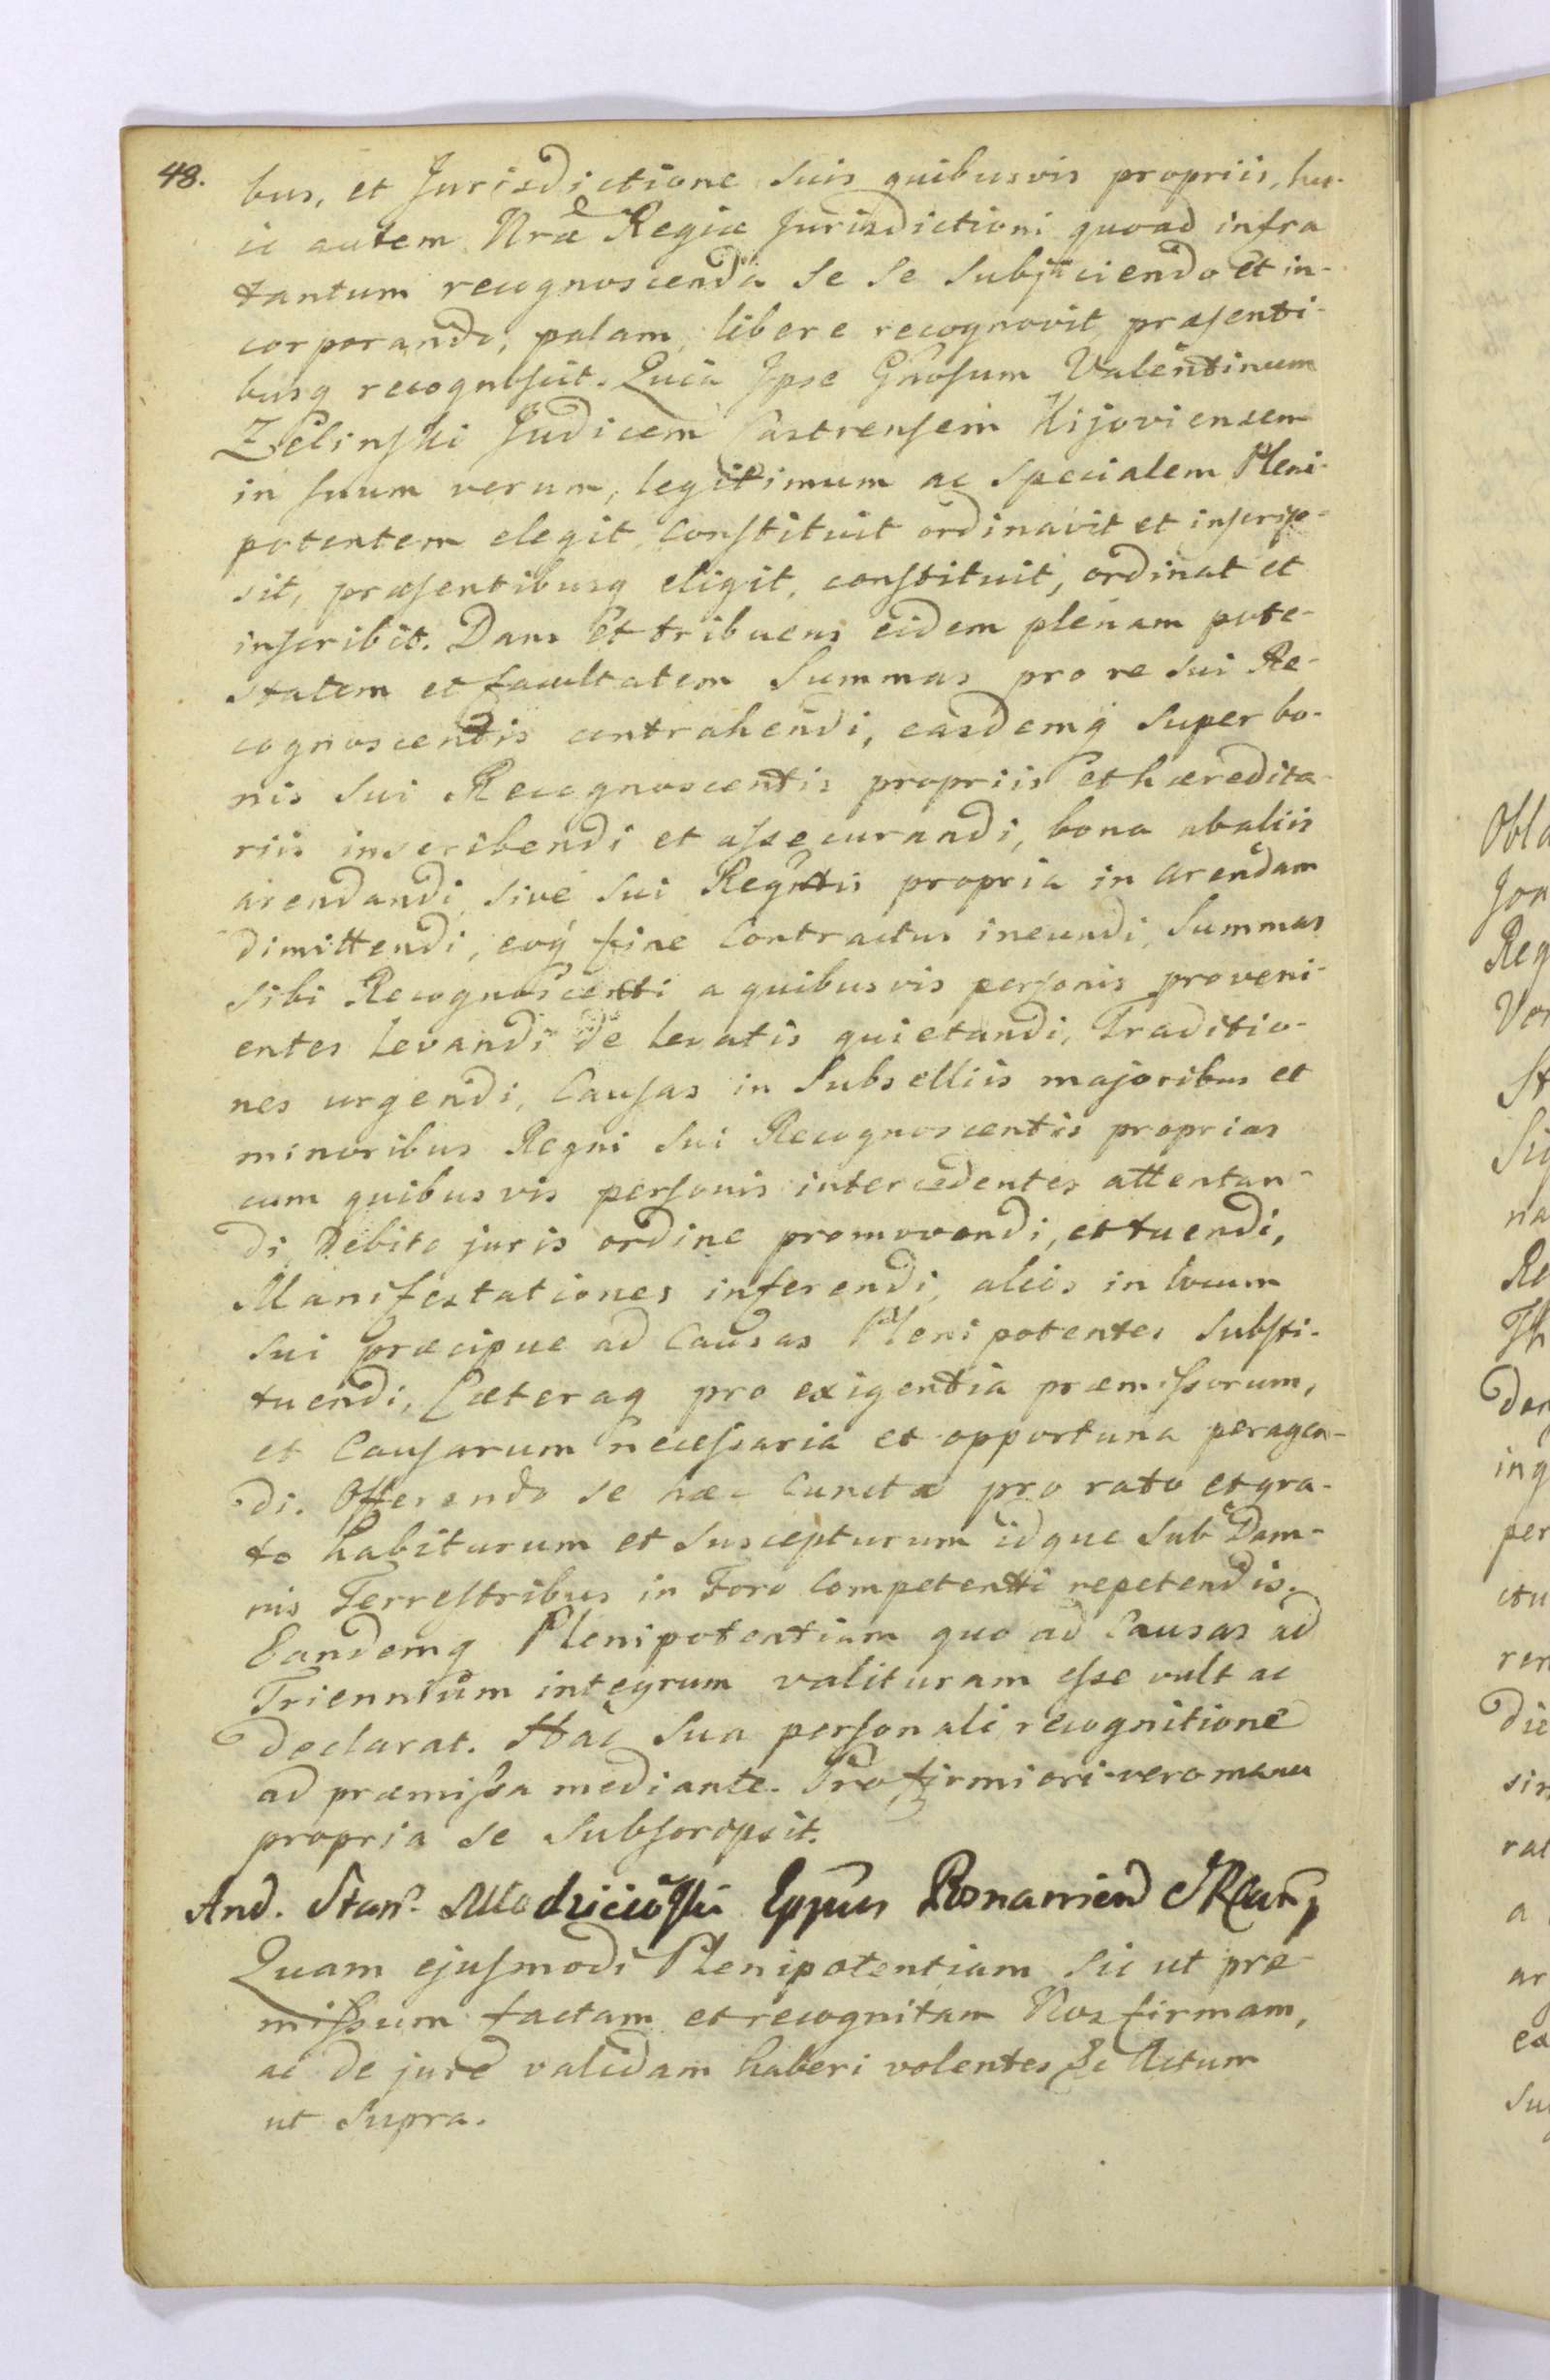 48.
bus, et Jurisdictione suis quibusvis propriis, hu-
ic autem Nrae Regiae Jurisdictioni quoad infra
tantum recognoscenda se se subjiciendo et in-
corporando, palam, libere recognovit, praesenti-
busq recognoscit. Quia Ipse Gnosum Valentinum
Zielinski Judicem Castrensem Kijoviensem
in suum verum, legitimum ac specialem Pleni-
potentem elegit, constituit ordinavit et inscrip-
sit, praesentibusq eligit, constituit, ordinat et
inscribit. Dans et tribuens eidem plenam pote-
statem et facultatem Summas pro re sui Re-
cognoscentis contrahendi, easdemq super bo-
nis sui Recognoscentis propriis et haeredita-
riis inscribendi et assecurandi, bona ab aliis
arendandi, sive sui Regntis propria in arendam
dimittendi, eoq fine Contractus ineundi, Summas
sibi Recognoscenti a quibusvis personis proveni-
entes levandi de levatis quietandi, Traditio-
nes urgendi, Causas in Subselliis majoribus et
minoribus Regni sui Recognoscentis proprias
cum quibusvis personis intercedentes attentan-
di, Debito juris ordine promovendi, et tuendi,
Manifestationes inferendi, alios in locum
sui praecipue ad Causas Plenipotentes substi-
tuendi, Caeteraq pro exigentia praemissorum,
et Causarum necessaria et opportuna peragen-
di. Offerendo se haec cuncta pro rato et gra-
to habiturum et suscepturum idque sub Dam-
nis Terrestribus in Foro Competenti repetendis.
Eandemq Plenipotentiam quo ad Causas ad
Triennium integrum valituram esse vult ac
declarat. Hac sua personali recognitione
ad praemissa mediante. Pro firmiori vero manu
propria se subscripsit.
And. Stan. Młodziejoski Eppus
Quam ejusmodi Plenipotentiam sic ut prae-
missum factam et recognitam Nos firmam,
ac de jure validam haberi volentes &c Actum
ut supra.